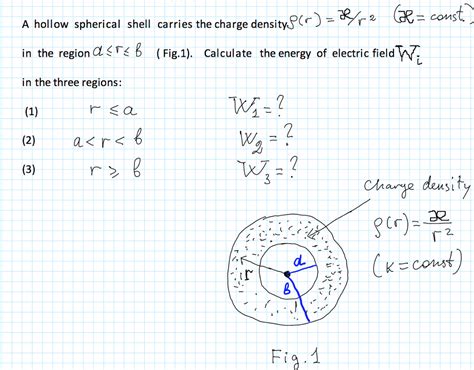 A hollow spherical shell carries the charge density ρ(r) = æ/r² (æ = const)
in the region a ≤ r ≤ b (Fig.1). Calculate the energy of electric field Wᵢ
in the three regions:
(1) r ≤ a W₁ = ?
(2) a < r < b W₂ = ?
(3) r ⩾ b W₃ = ?
charge density
ρ(r) = æ/r²
(κ = const)
a
r
b
Fig. 1